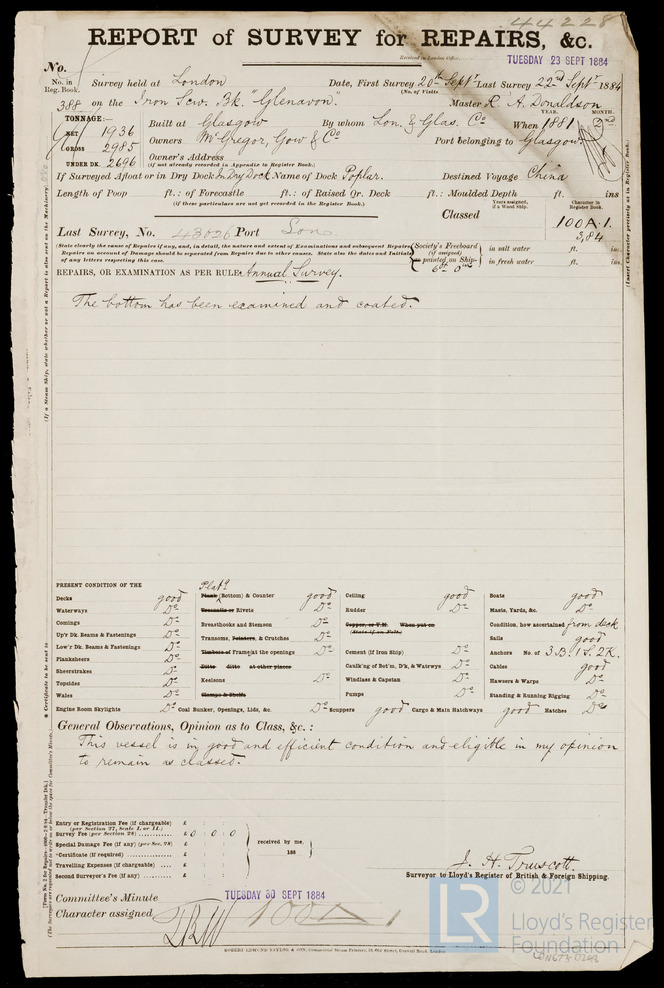 44228
REPORT of SURVEY for REPAIRS, &c.
Received in London Office,
TUESDAY 23 SEPT 1884
No.
No. in Reg. Book. Survey held at London Date, First Survey 20th Septr Last Survey 22nd Septr 1884
(No. of Visits
388 on the Iron Scw. Bk. "Glenavon." Master A. Donaldson
TONNAGE:—
YEAR. MONTH.
NET 1936 Built at Glasgow By whom Lon. & Glas. Co When 1881
GROSS 2985 Owners McGregor, Gow & Co Port belonging to Glasgow
UNDER DK. 2696 Owner's Address
(if not already recorded in Appendix to Register Book.)
If Surveyed Afloat or in Dry Dock In Dry Dock Name of Dock Poplar. Destined Voyage China
Length of Poop ft.: of Forecastle ft.: of Raised Qr. Deck ft.: Moulded Depth ft. ins
(if these particulars are not yet recorded in the Register Book.)
Years assigned, if a Wood Ship.
Character in Register Book.
Classed 100A.1.
3,84
Last Survey, No. 43026 Port Lon.
(State clearly the cause of Repairs if any, and, in detail, the nature and extent of Examinations and subsequent Repairs.
Repairs on account of Damage should be separated from Repairs due to other causes. State also the dates and initials
of any letters respecting this case.
Society's Freeboard (if assigned) as painted on Ship—
in salt water ft. in.
in fresh water ft. ins.
REPAIRS, OR EXAMINATION AS PER RULE Annual Survey.
The bottom has been examined and coated.
PRESENT CONDITION OF THE
Decks good
Waterways Do
Comings Do
Up'r Dk. Beams & Fastenings Do
Low'r Dk. Beams & Fastenings Do
Planksheers Do
Sheerstrakes Do
Topsides Do
Wales Do
Engine Room Skylights Do
Platg
Plank (Bottom) & Counter good
Treenails or Rivets Do
Breasthooks and Stemson Do
Transoms, Pointers, & Crutches Do
Timbers of Frame at the openings Do
Ditto ditto at other places
Keelsons Do
Clamps & Shelfs
Coal Bunker, Openings, Lids, &c. Do
Ceiling good
Rudder Do
Copper, or Y.M. When put on
(State if on Felt)
Cement (if Iron Ship) Do
Caulk'ng of Bot'm, D'k, & Watrwys Do
Windlass & Capstan Do
Pumps Do
Scuppers good
Cargo & Main Hatchways good
Boats good
Masts, Yards, &c. Do
Condition, how ascertained from deck
Sails good
Anchors No. of 3.B. 1S. 2K.
Cables good
Hawsers & Warps Do
Standing & Running Rigging Do
Hatches Do
General Observations, Opinion as to Class, &c.:
This vessel is in good and efficient condition and eligible in my opinion
to remain as classed.
Entry or Registration Fee (if chargeable) £
(per Section 27, Scale I. or II.)
Survey Fee (per Section 28) £ 0 0 0
Special Damage Fee (if any) (per Sec. 28) £
*Certificate (if required) £
Travelling Expenses (if chargeable) £
Second Surveyor's Fee (if any) £
received by me,
188
J. H. Truscott
Surveyor to Lloyd's Register of British & Foreign Shipping.
Committee's Minute TUESDAY 30 SEPT 1884
Character assigned 100 A 1
ROBERT EDMUND TAYLOR & SON, Commercial Steam Printers, 19, Old Street, Goswell Road, London
LR
© 2021
Lloyd's Register
Foundation